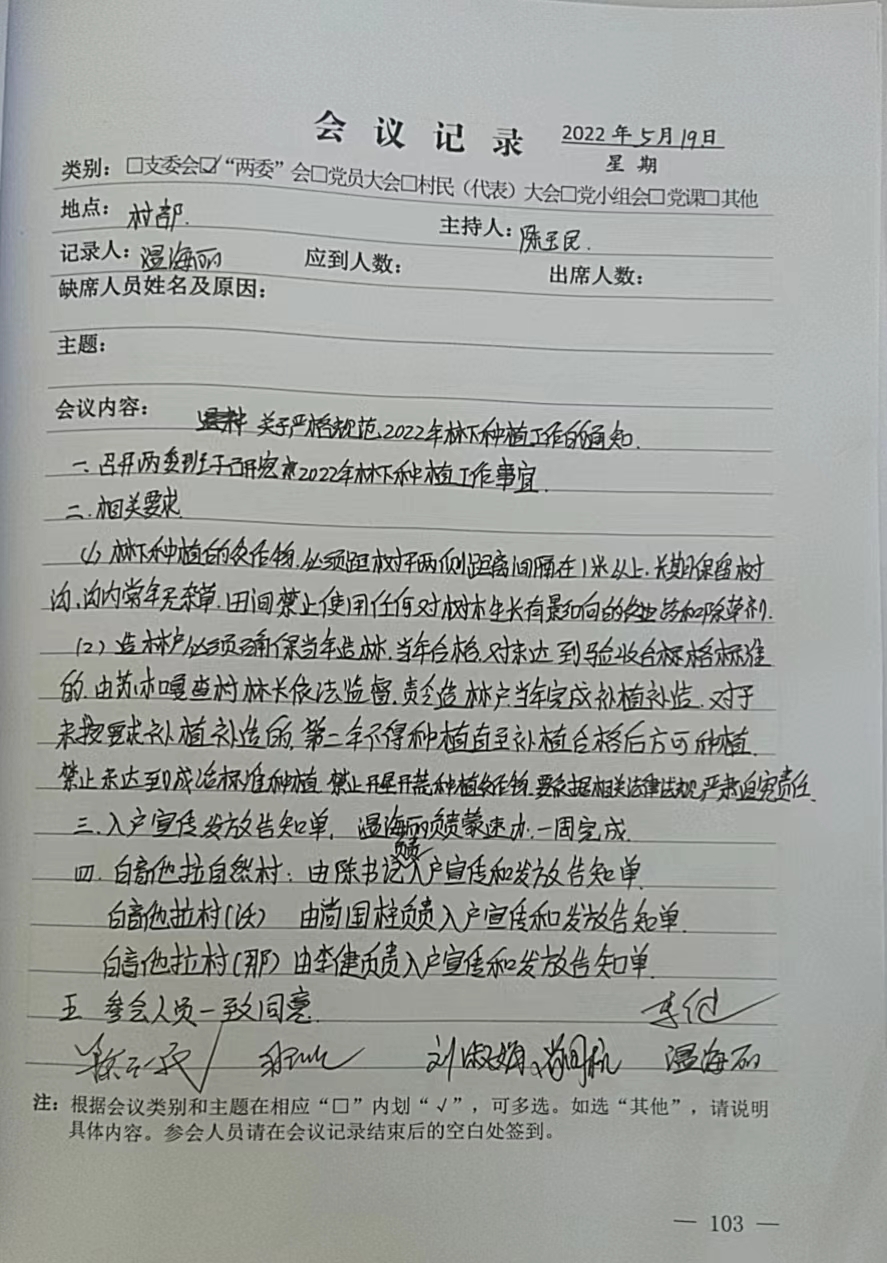 会议记录 2022年5月19日
星期
类别：□支委会☑“两委”会□党员大会□村民（代表）大会□党小组会□党课□其他
地点：村部. 主持人：陈玉民.
记录人：温海丽 应到人数： 出席人数：
缺席人员姓名及原因：
主题：
会议内容： 关于严格规范2022年林下种植工作的通知.
一.召开两委班子 2022年林下种植工作事宜.
二.相关要求.
(1)林下种植的农作物.必须距树干两侧距离间隔在1米以上.长期保留树
沟,沟内常年无杂草.田间禁止使用任何对树木生长有影响的农业药和除草剂.
(2)造林户必须确保当年造林.当年合格.对未达到验收合格标准
的.由苏木嘎查村林长依法监督.责令造林户当年完成补植补造.对于
未按要求补植补造的,第二年不得种植直至补植合格后方可种植.
禁止未达到成活标准种植.禁止开垦开荒种植农作物.要依据相关法律法规严肃追究责任.
三.入户宣传发放告知单, 温海丽负责 一周完成.
四.白音他拉自然村：由陈书记负责入户宣传和发放告知单.
白音他拉村(沃) 由尚国柱负责入户宣传和发放告知单.
白音他拉村(那)由李健负责入户宣传和发放告知单.
五 参会人员一致同意.
刘淑娟 温海丽
注：根据会议类别和主题在相应“□”内划“√”，可多选。如选“其他”，请说明
具体内容。参会人员请在会议记录结束后的空白处签到。
— 103 —